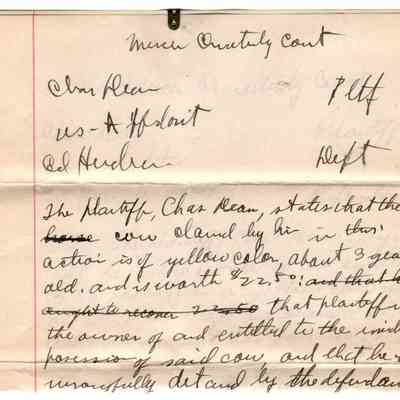 Mercer Quarterly Court
Chas Dean Pltf
vs - Affidavit
Ed Deft
The Plaintiff, Chas Dean, states that the
horse cow claimed by him in this
action is of yellow color, about 3 yea
old. and is worth $22.50: and that h
ought to recover 22.50 that plaintiff i
the owner of and entitled to the imd
possession of said cow and that he
wrongfully detained by the defendan